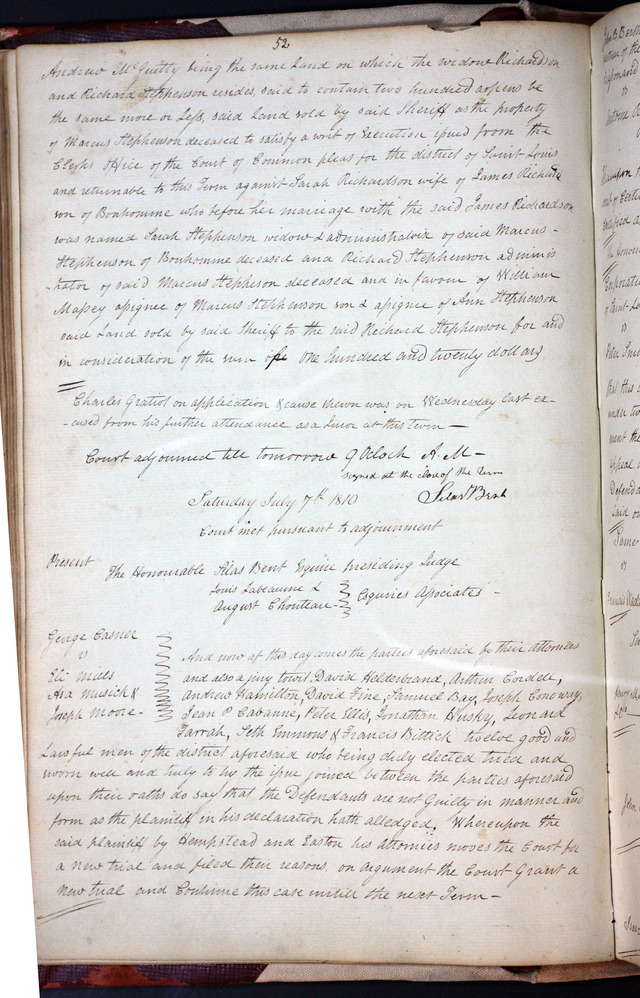 52
Andrew McQuitty being the same Land on which the widow Richardson
and Richard Stephenson resides, said to contain two hundred arpens be
the same more or Less, said Land sold by said Sheriff as the property
of Marcus Stephenson deceased to satisfy a writ of Execution issued from the
Clerks office of the Court of Common pleas for the district of Saint Louis
and returnable to this Term against Sarah Richardson wife of James Richard
son of Bonhomme who before her mariage with the said James Richardson
was named Sarah Stephenson widow & administratrix of said Marcus
Stephenson of Bonhomme deceased and Richard Stephenson adminis
-trator of said Marcus Stepheson deceased and in favour of William
Massey assignee of Marcus Stephenson son & assignee of Ann Stephenson
said Land sold by said Sheriff to the said Richard Stephenson for and
in consideration of the sum of One hundred and twenty dollars
Charles Gratiot on application & cause shewn was on Wednesday last ex-
-cused from his further attendance as a Juror at this term—
Court adjourned till tomorrow 9 OClock A. M—
signed at the close of the Term
Silas Bent
Saturday July 7th 1810
Court met pursuant to adjournment
Present The Honourable Silas Bent Esquire presiding Judge
Louis Labeaume &
August Chouteau Esquires Associates
George Casner
vs
Eli Mills
Asa Musick &
Joseph Moore
And now at this day comes the parties aforesaid by their Attornies
and also a jury towit David Helderbrand, Arthur Cordell,
Andrew Hamilton, David Fine, Samuel Bay, Joseph Conevrey,
Jean P Cabanne, Peter Ellis, Jonathan Husky, Leonard
Farrah, Seth Emmons & Francis Bittick twelve good and
Lawful men of the district aforesaid who being duly elected tried and
sworn well and truly to try the issue joined between the parties aforesaid
upon their oaths do say that the Defendants are not Guilty in manner and
form as the plaintiff in his declaration hath alledged. Whereupon the
said plaintiff by Hempstead and Easton his Attornies moves the Court for
a new trial and filed their reasons. on argument the Court Grant a
New trial and Continue this case untill the next Term—